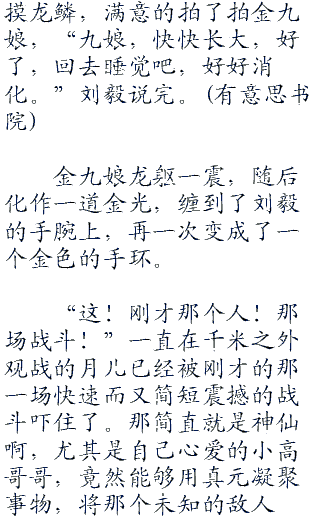 摸龙鳞，满意的拍了拍金九
娘，“九娘，快快长大，好
了，回去睡觉吧，好好消
化。”刘毅说完。(有意思书
院)
金九娘龙躯一震，随后
化作一道金光，缠到了刘毅
的手腕上，再一次变成了一
个金色的手环。
“这！刚才那个人！那
场战斗！”一直在千米之外
观战的月儿已经被刚才的那
一场快速而又简短震撼的战
斗吓住了。那简直就是神仙
啊，尤其是自己心爱的小高
哥哥，竟然能够用真元凝聚
事物，将那个未知的敌人